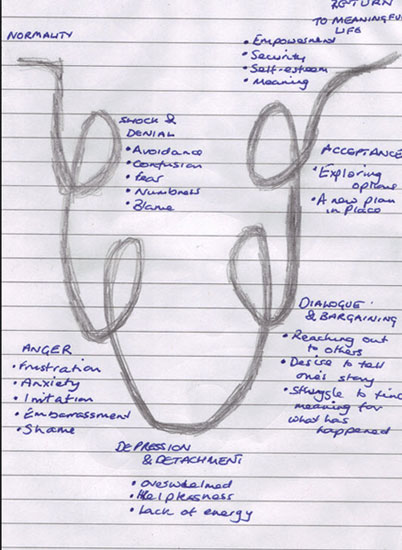 RETURN
TO MEANINGFUL
LIFE
NORMALITY
• Empowerment
• Security
• Self-esteem
• Meaning
SHOCK &
DENIAL
• Avoidance
• Confusion
• Fear
• Numbness
• Blame
ACCEPTANCE
• Exploring
options
• A new plan
in place
DIALOGUE
& BARGAINING
• Reaching out
to others
• Desire to tell
one's story
• Struggle to find
meaning for
what has
happened
ANGER
• Frustration
• Anxiety
• Irritation
• Embarrassment
• Shame
DEPRESSION
& DETACHMENT
• Overwhelmed
• Helplessness
• Lack of energy